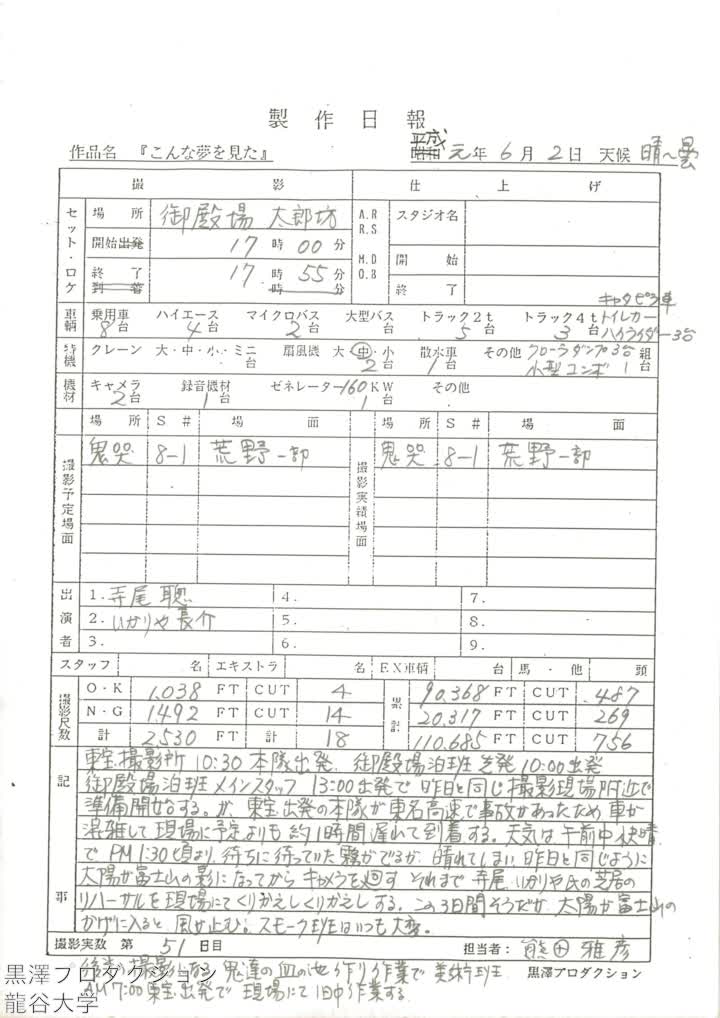 製作日報
作品名 『こんな夢を見た』 平成元年6月2日 天候 晴〜曇
撮影 仕上げ
セット・ロケ 場所 御殿場 太郎坊 A.R R.S スタジオ名
開始出発 17時00分 M.D D.B 開始
終了到着 17時55分 終了
キャタピラ車
車輌 乗用車 8台 ハイエース 4台 マイクロバス 2台 大型バス 台 トラック2t 5台 トラック4t 3台 トイレカー ハイライダー3台
特機 クレーン 大・中・小・ミニ 台 扇風機 大・中・小 2台 散水車 1台 その他 クローラダンプ3台 小型ユンボ 1 組台
機材 キャメラ 2台 録音機材 1台 ゼネレーター160KW 1台 その他
場所 S# 場面 場所 S# 場面
撮影予定場面 鬼哭 8-1 荒野一部 撮影実績場面 鬼哭 8-1 荒野一部
出演者 1.寺尾聰 4. 7.
2.いかりや長介 5. 8.
3. 6. 9.
スタッフ 名 エキストラ 名 EX車輌 台 馬・他 頭
撮影尺数 O・K 1,038 FT CUT 4 累計 90,368 FT CUT 487
N・G 1,492 FT CUT 14 20,317 FT CUT 269
計 2,530 FT 計 18 110,685 FT CUT 756
記事
東宝撮影所 10:30 本隊出発、御殿場泊班 10:00出発
御殿場泊班メインスタッフ 13:00出発で昨日と同じ撮影現場附近で
準備開始する。が、東宝出発の本隊が東名高速で事故があったため車が
混雑して現場に予定よりも約1時間遅れて到着する。天気は午前中快晴
で PM1:30頃より、待ちに待っていた霧がでるが、晴れてしまい、昨日と同じように
太陽が富士山の影になってからキャメラを廻す それまで寺尾、いかりや氏の芝居の
リハーサルを現場にてくりかえしくりかえしする。この3日間そうだが、太陽が富士山の
かげに入ると 風が止む。スモーク班はいつも大変。
撮影実数 第51日目 担当者：熊田雅彦
黒澤プロダクション
撮影 鬼達の血の池作り作業で 美術班
AM7:00東宝出発で 現場にて1日中作業する
黒澤プロダクション
龍谷大学